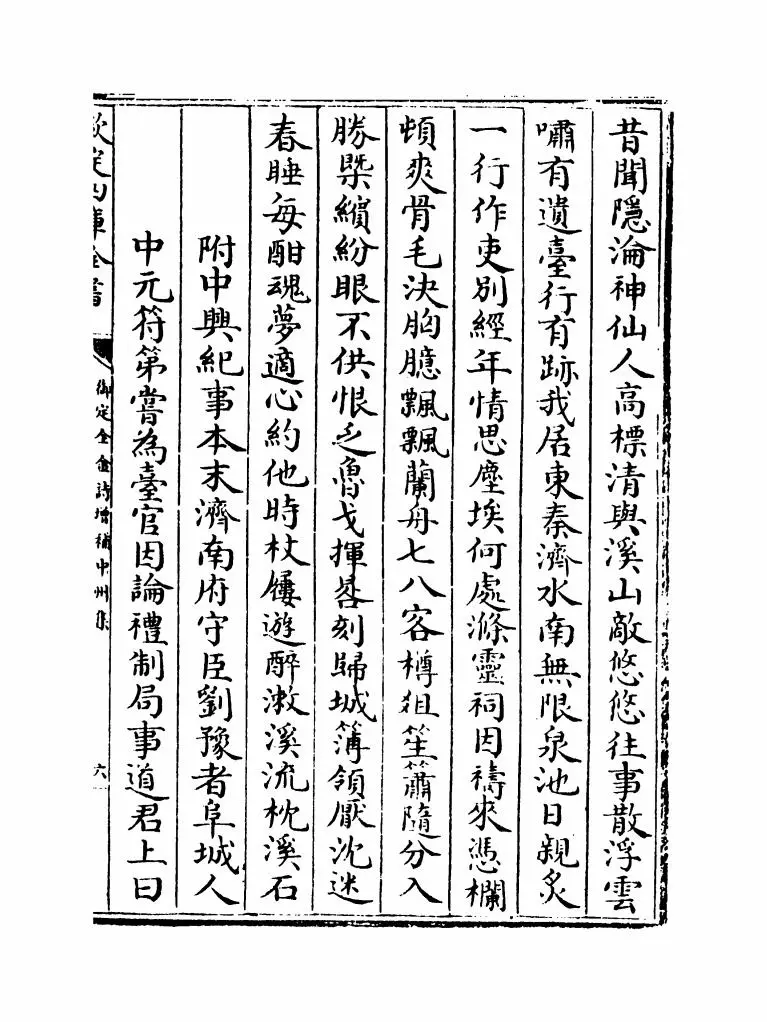 昔聞隱淪神仙人高標清與溪山敵悠悠往事散浮雲
嘯有遺臺行有跡我居東秦濟水南無限泉池日親炙
一行作吏別經年情思塵埃何處滌靈祠因禱來憑欄
頓爽骨毛決胸臆飄飄蘭舟七八客樽俎笙簫隨分入
勝槩繽紛眼不供恨乏魯戈揮晷刻歸城簿領厭沈迷
春睡每酣魂夢適心約他時杖屨遊醉漱溪流枕溪石
附中興紀事本末濟南府守臣劉豫者阜城人
中元符第嘗為臺官因論禮制局事道君上曰
欽定四庫全書
御定全金詩增補中州集
六